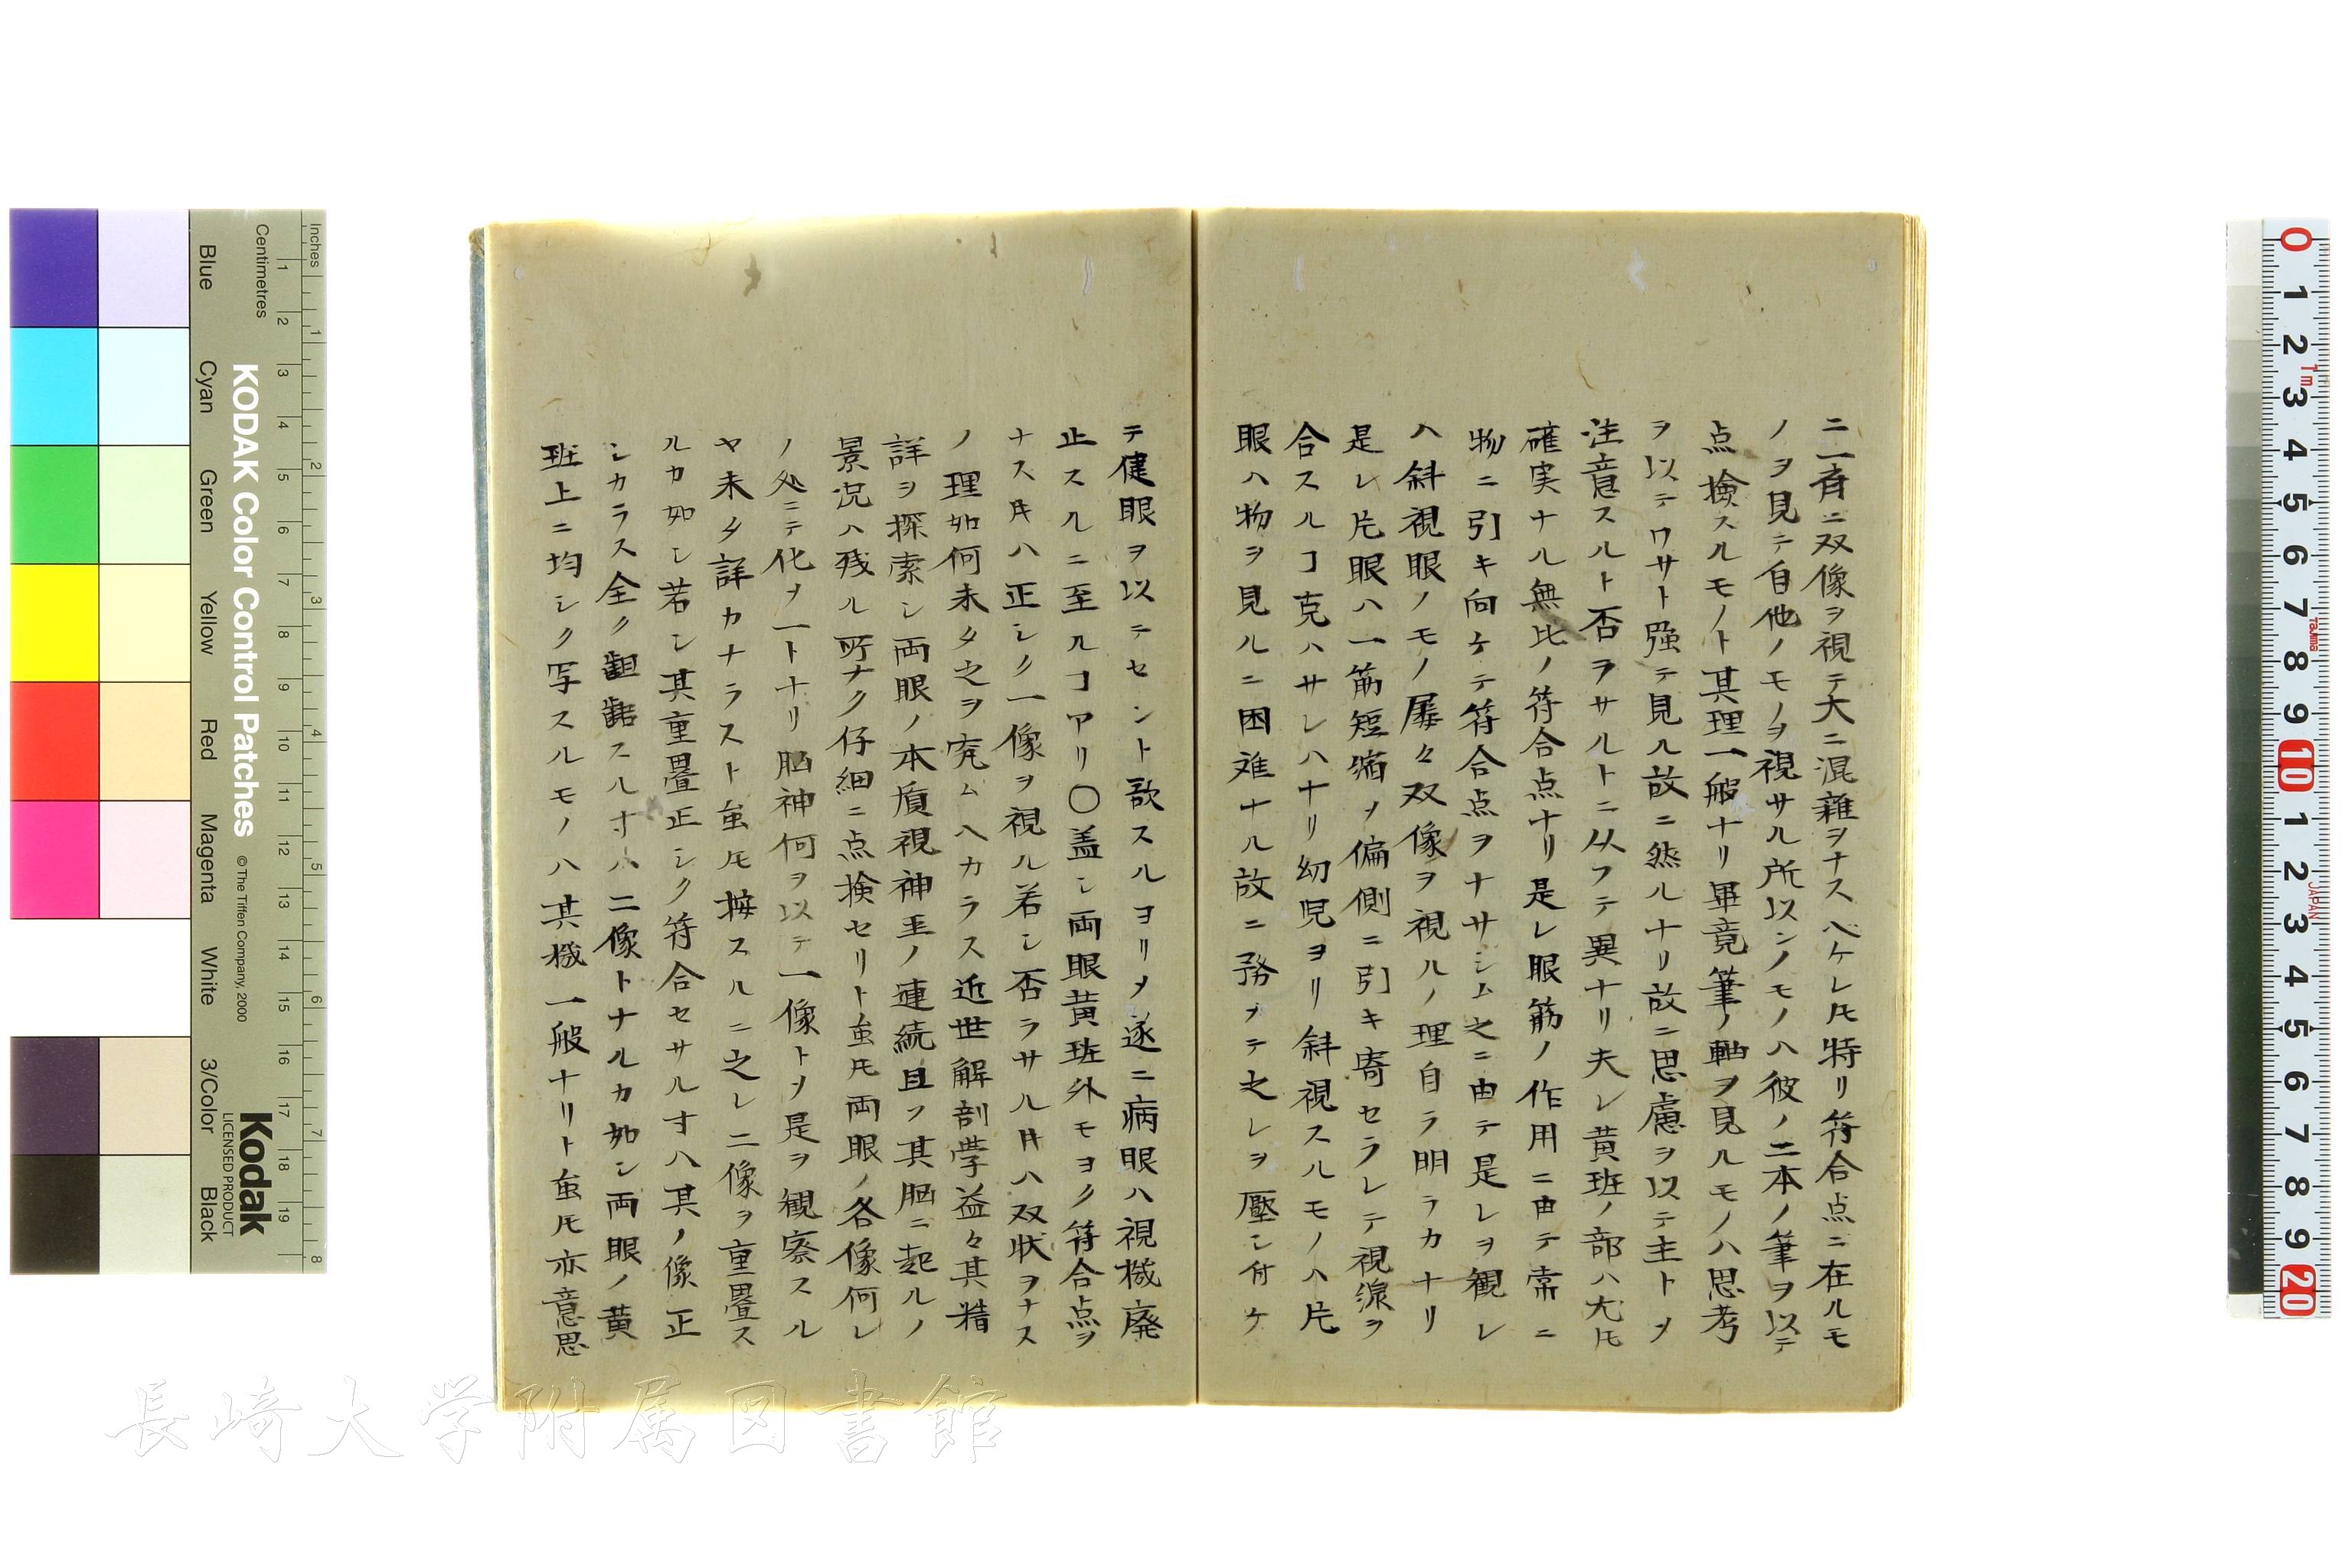 ニ一斉ニ双像ヲ視テ大ニ混雑ヲナスヘケレ𪜈特リ符合点ニ在ルモ
ノヲ見テ自他ノモノヲ視サル所以ンノモノハ彼ノ二本ノ筆ヲ以テ
点撿スルモノト其理一般ナリ畢竟筆ノ軸ヲ見ルモノハ思考
ヲ以テワサト強テ見ル故ニ然ルナリ故ニ思慮ヲ以テ主トメ
注意スルト否ヲサルトニ从フテ異ナリ夫レ黄斑ノ部ハ尤𪜈
確実ナル無比ノ符合点ナリ是レ眼筋ノ作用ニ由テ常ニ
物ニ引キ向ケテ符合点ヲナサシム之ニ由テ是レヲ観レ
ハ斜視眼ノモノ屡々双像ヲ視ルノ理自ラ明ラカナリ
是レ片眼ハ一筋短縮メ偏側ニ引キ寄セラレテ視線ヲ
合スルヿ克ハサレハナリ幼児ヨリ斜視スルモノハ片
眼ハ物ヲ見ルニ困难ナル故ニ務メテ之レヲ壓シ付ケ
テ健眼ヲ以テセント欲スルヨリメ遂ニ病眼ハ視機廃
止スルニ至ルヿアリ〇盖シ両眼黄斑外モヨク符合点ヲ
ナス𪜈ハ正シク一像ヲ視ル若シ否ラサル𪜈ハ双状ヲナス
ノ理如何未タ之ヲ究ムヘカラス近世解剖學益々其精
詳ヲ探索シ両眼ノ本質視神圣ノ連続且ツ其脳ニ起ルノ
景况ハ残ル所ナク仔細ニ点検セリト虽𪜈両眼ノ各像何レ
ノ処ニテ化メ一トナリ脳神何ヲ以テ一像トメ是ヲ観察スル
ヤ未タ詳カナラスト虽𪜈按スルニ之レ二像ヲ重疊ス
ルカ如シ若シ其重疊正シク符合セサル寸ハ其ノ像正
シカラス全ク齟齬スル寸ハ二像トナルカ如シ両眼ノ黄
斑上ニ均シク写スルモノハ其機一般ナリト虽𪜈亦意思
長崎大学附属図書館
KODAK Color Control Patches
© The Tiffen Company, 2000
Kodak
LICENSED PRODUCT
Inches
Centimetres
Blue
Cyan
Green
Yellow
Red
Magenta
White
3/Color
Black